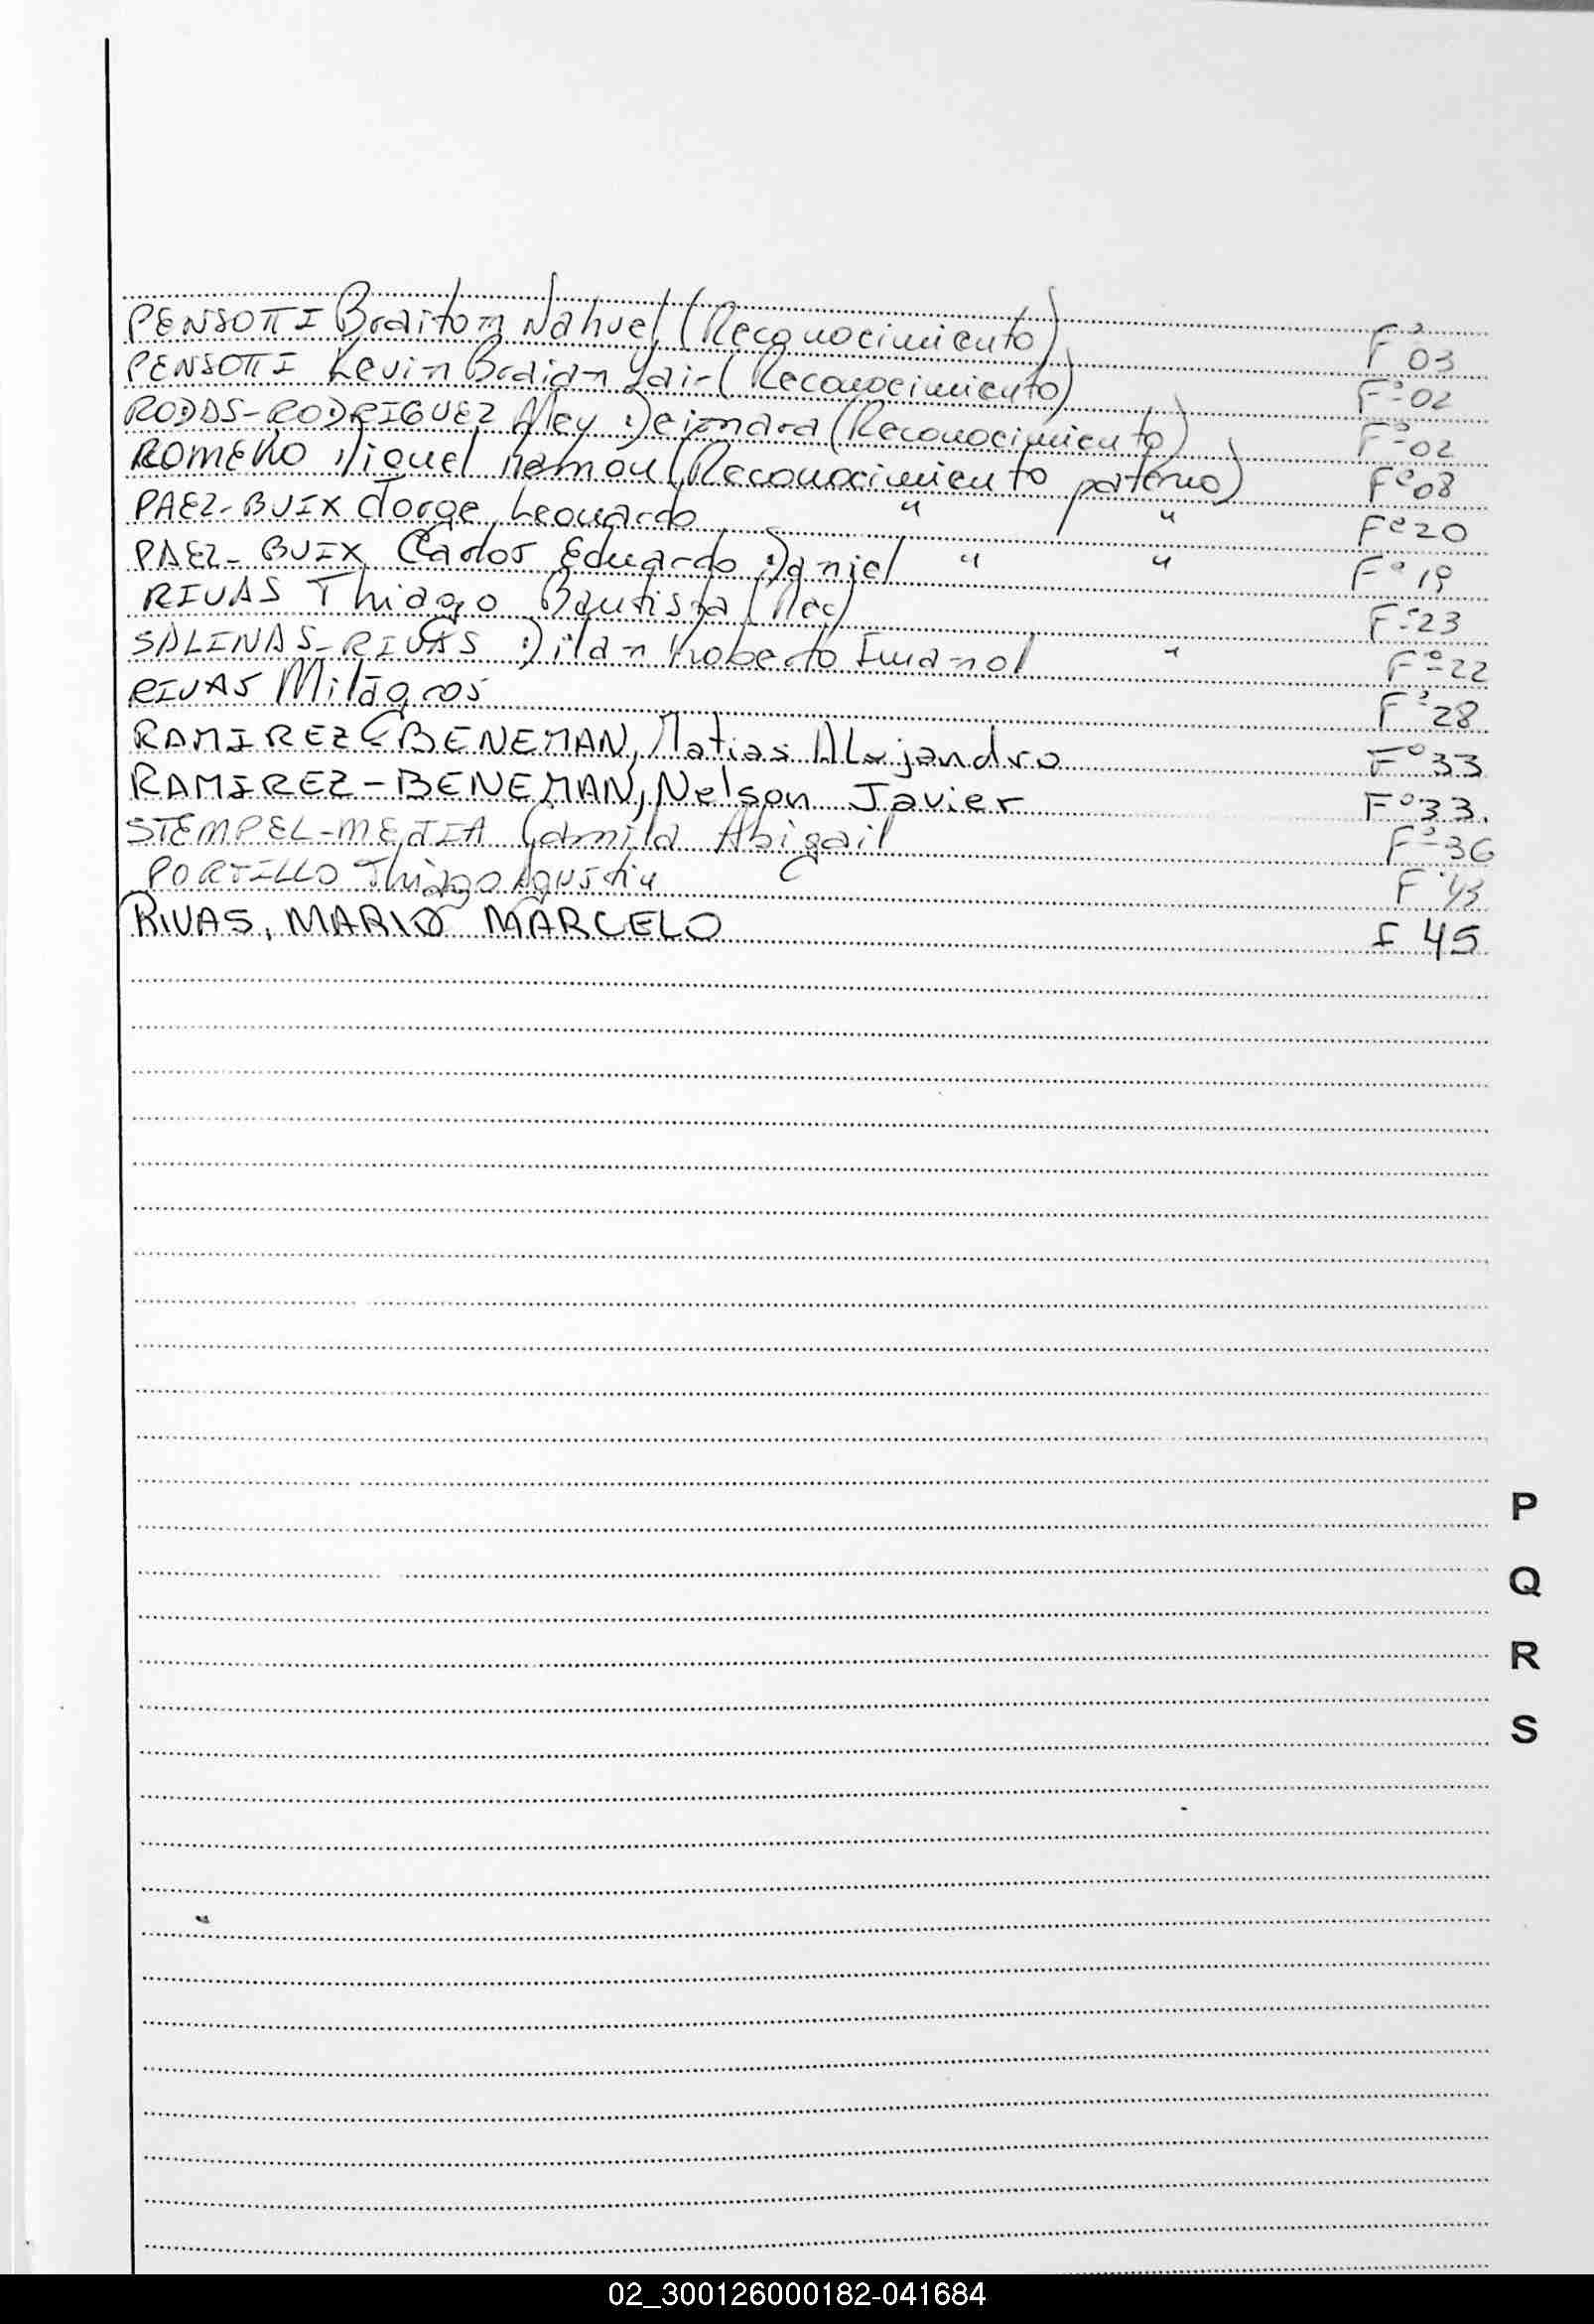 PENSOTTI Braitom Nahuel (Reconocimiento) Fº 03
PENSOTTI Kevin Braian Yair (Reconocimiento) Fº 02
RODAS-RODRIGUEZ Mey Deionara (Reconocimiento) Fº 02
ROMERO Miguel Ramon (Reconocimiento paterno) Fº 08
PAEZ-BUIX Jorge Leonardo " " Fº 20
PAEZ-BUIX Carlos Eduardo Daniel " " Fº 19
RIVAS Thiago Bautista (Rec) Fº 23
SALINAS-RIVAS Dilan Roberto Emanol " Fº 22
RIVAS Milagros Fº 28
RAMIREZ-BENEMAN, Matias Alejandro Fº 33
RAMIREZ-BENEMAN, Nelson Javier Fº 33.
STEMPEL-MEJIA Camila Abigail Fº 36
PORTILLO Thiago Agustin F 43
RIVAS, MARIO MARCELO F 45
P
Q
R
S
02_300126000182-041684